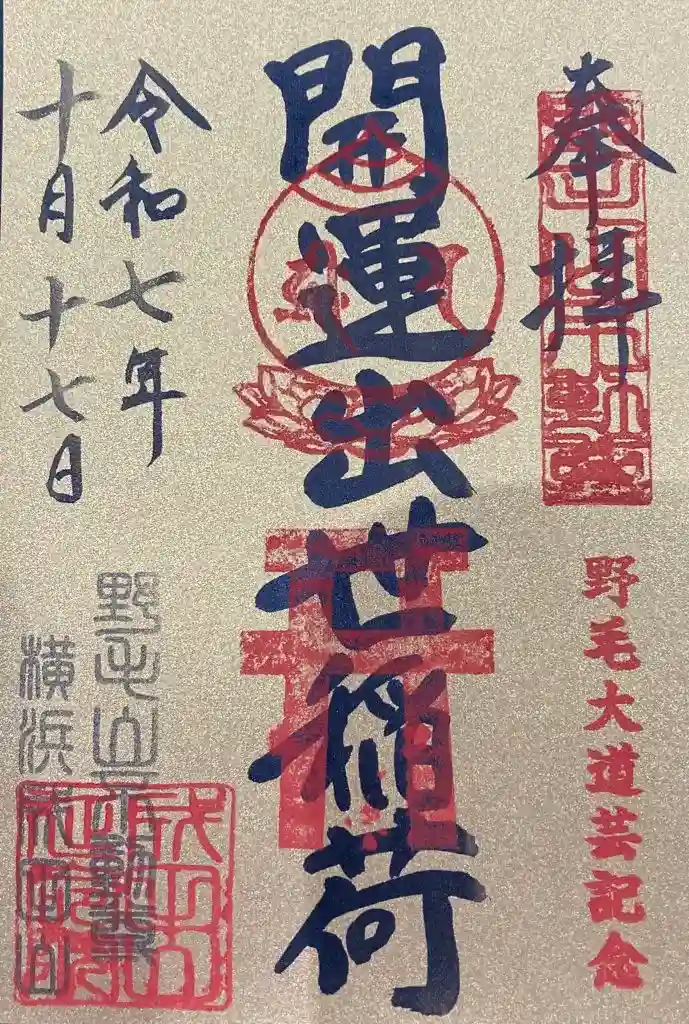 奉拝
野毛大道芸記念
開運出世稲荷
令和七年
十月十七日
野毛山不動尊
横浜成田山